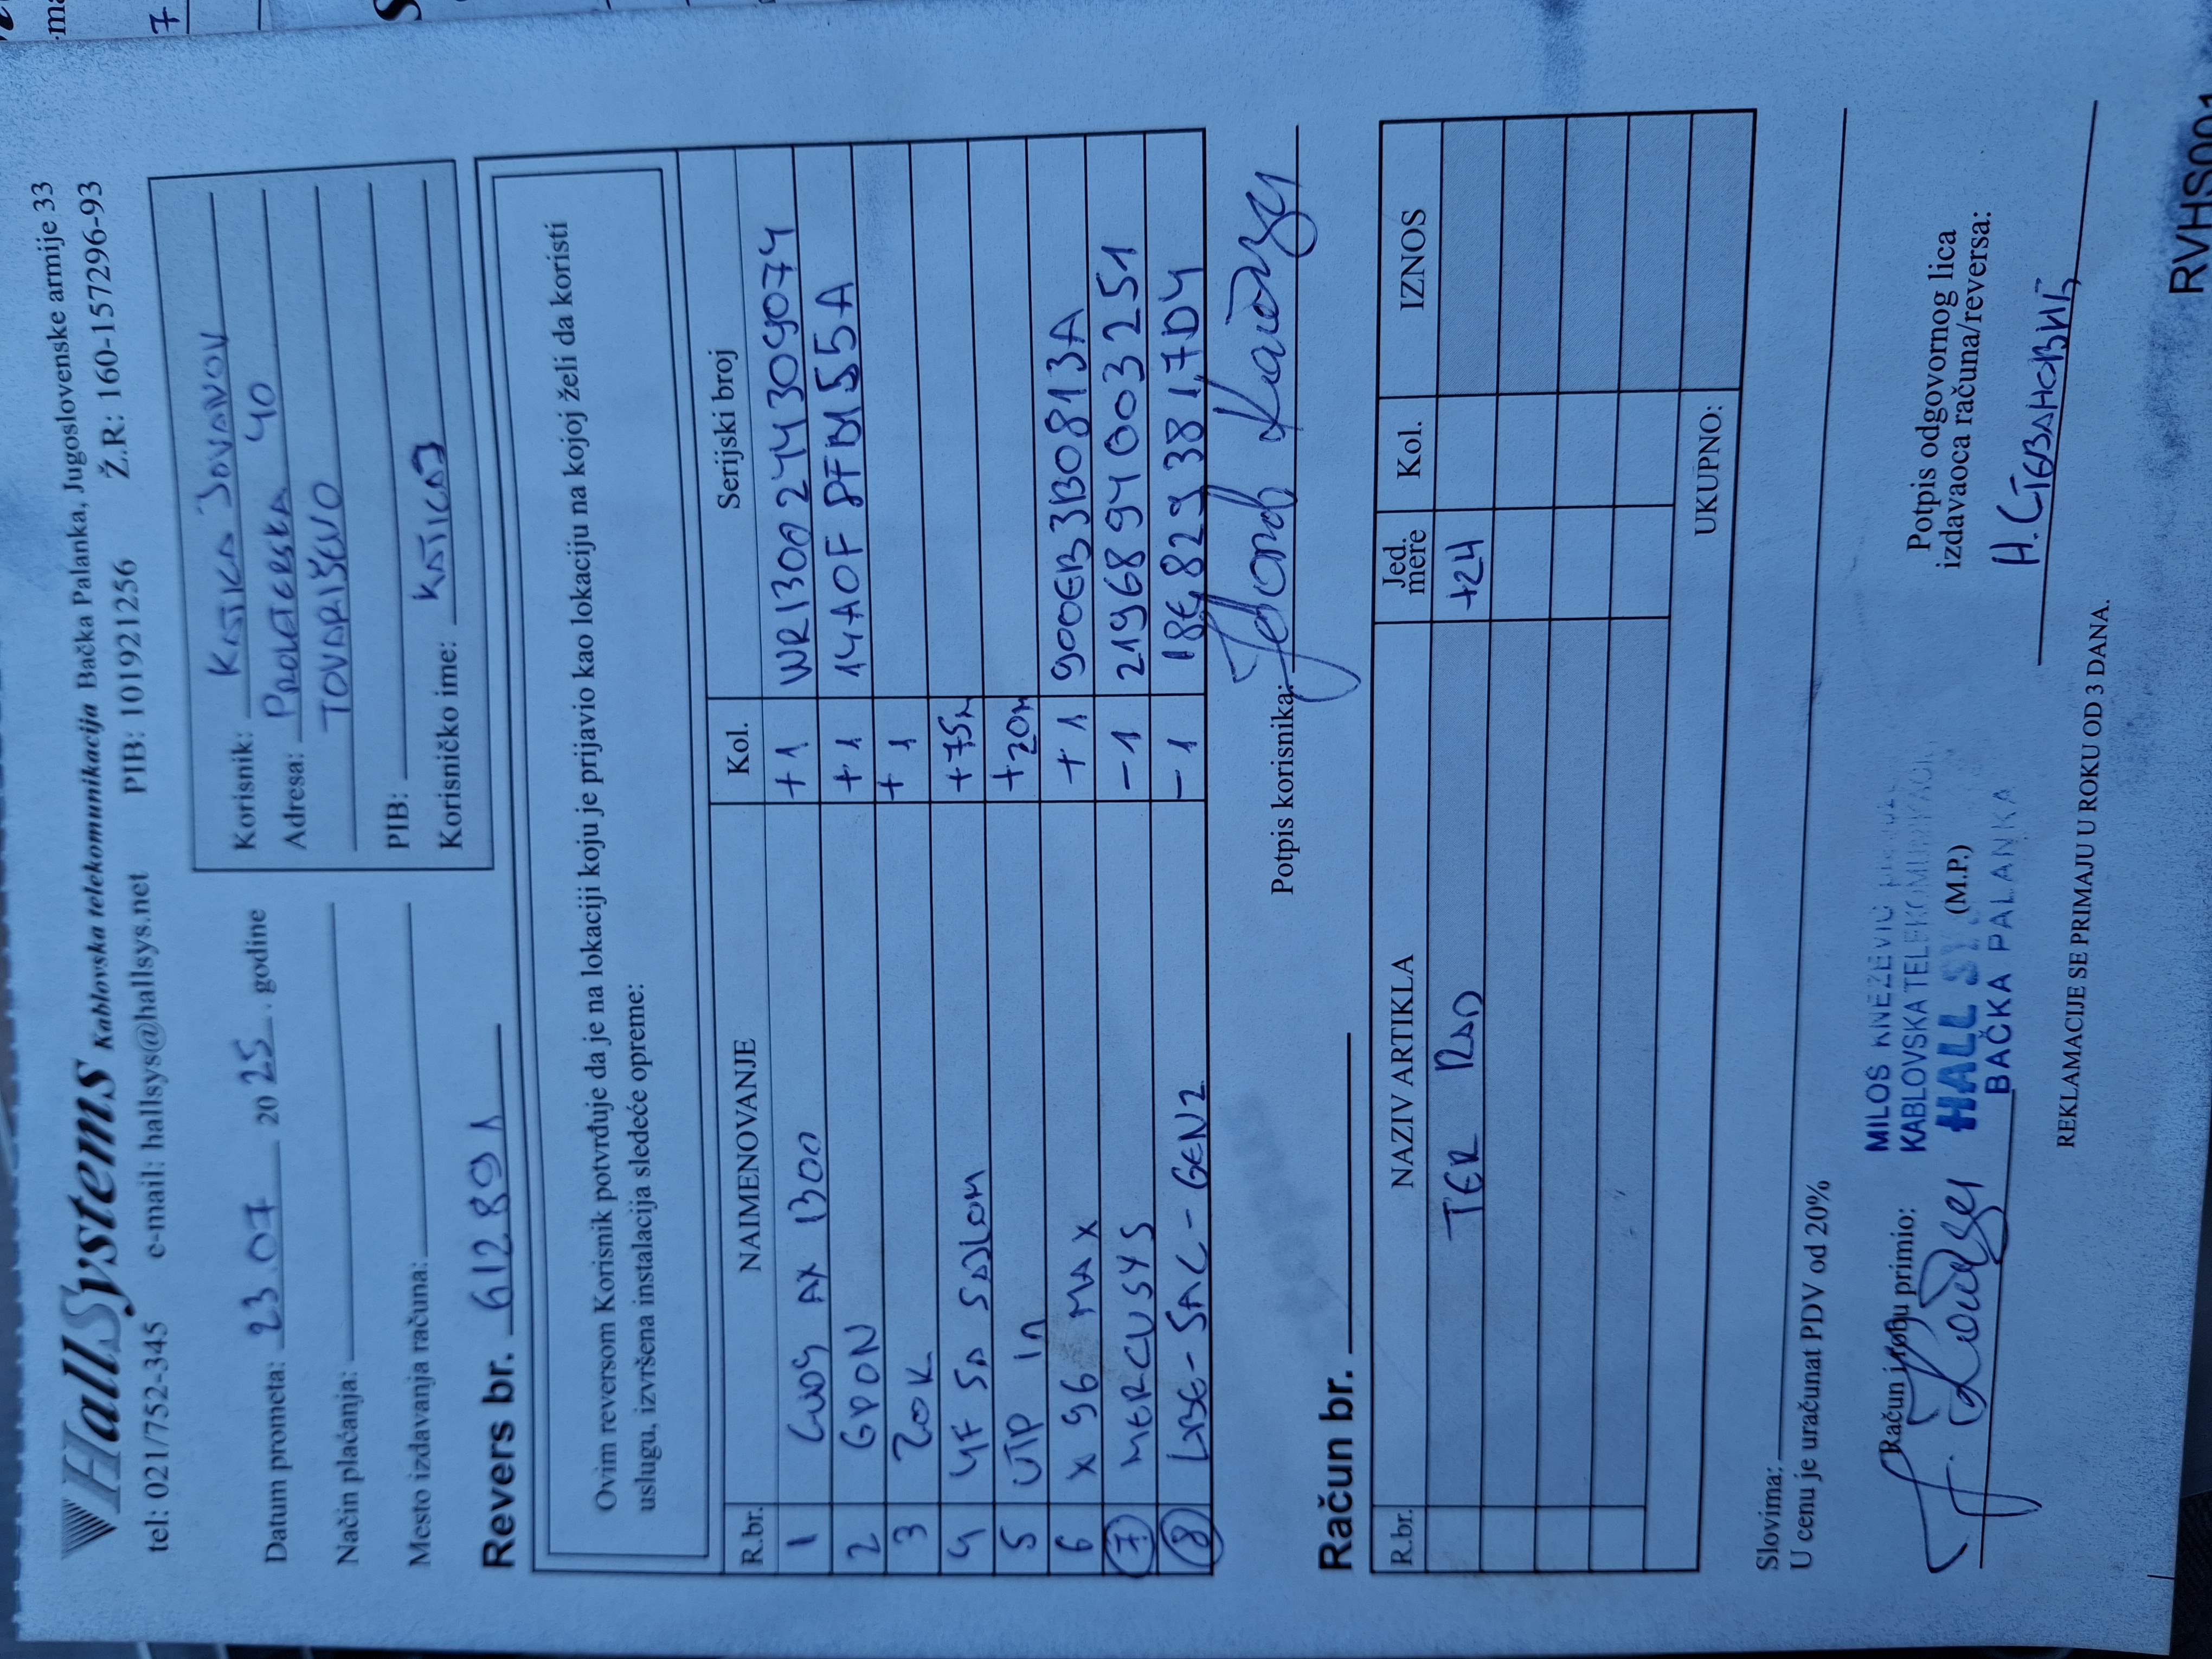 HallSystems Kablovska telekomunikacija Bačka Palanka, Jugoslovenske armije 33
tel: 021/752-345 e-mail: hallsys@hallsys.net PIB: 101921256 Ž.R: 160-157296-93
Datum prometa: 23.07 2025. godine
Način plaćanja:
Mesto izdavanja računa:
Korisnik: KATICA JOVANOV
Adresa: PROLETERSKA 40
TOVARIŠEVO
PIB:
Korisničko ime: KATICAJ
Revers br. 612891
Ovim reversom Korisnik potvrđuje da je na lokaciji koju je prijavio kao lokaciju na kojoj želi da koristi
uslugu, izvršena instalacija sledeće opreme:
R.br. NAIMENOVANJE Kol. Serijski broj
1 AX 1300 +1 WR1300244309074
2 GPON +1
3 ZOK +1
4 4F SA SAJLOM +75m
5 UTP +20m
6 X96 MAX +1 900EB3B0813A
7 MERCUSYS -1 2196894003251
8 LBE-5AC-GEN2 -1
Potpis korisnika:
Račun br.
R.br. NAZIV ARTIKLA Jed. mere Kol. IZNOS
TER RAD +24
UKUPNO:
Slovima:
U cenu je uračunat PDV od 20%
Račun i robu primio:
MILOS KNEZEVIC
KABLOVSKA TELEKOMUNIKACIJA
HALL SYS
BAČKA PALANKA
(M.P.)
Potpis odgovornog lica
izdavaoca računa/reversa:
Н. СТЕВАНОВИЋ
REKLAMACIJE SE PRIMAJU U ROKU OD 3 DANA.
RVHS001